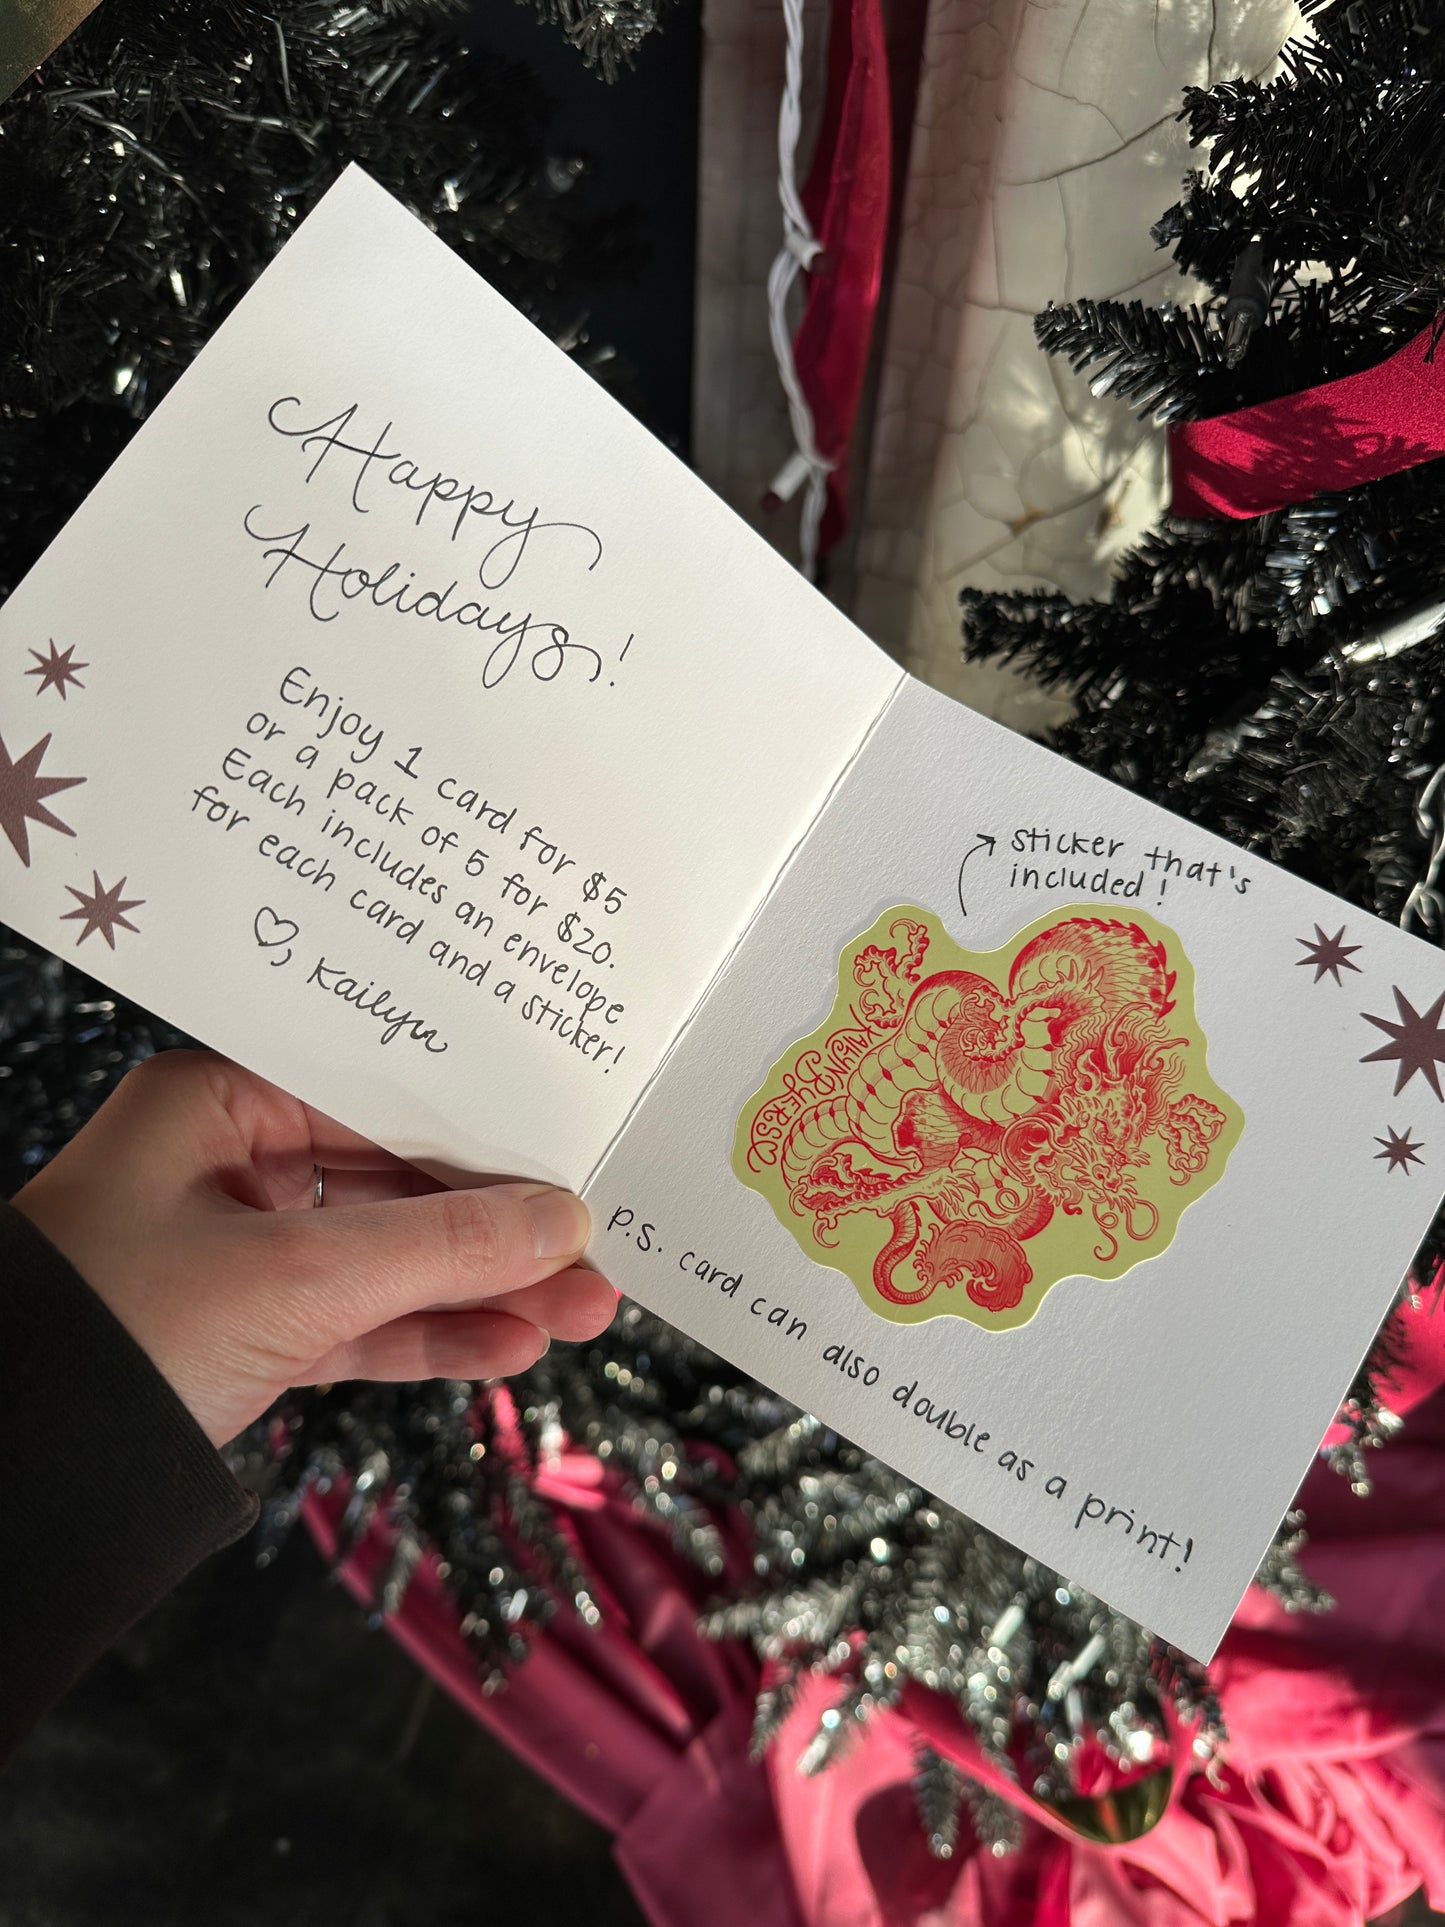 Happy
Holidays!
Enjoy 1 card for $5
or a pack of 5 for $20.
Each includes an envelope
for each card and a sticker!
♡, Kailyn
sticker that's
included!
KAILYN
BYERS
p.s. card can also double as a print!